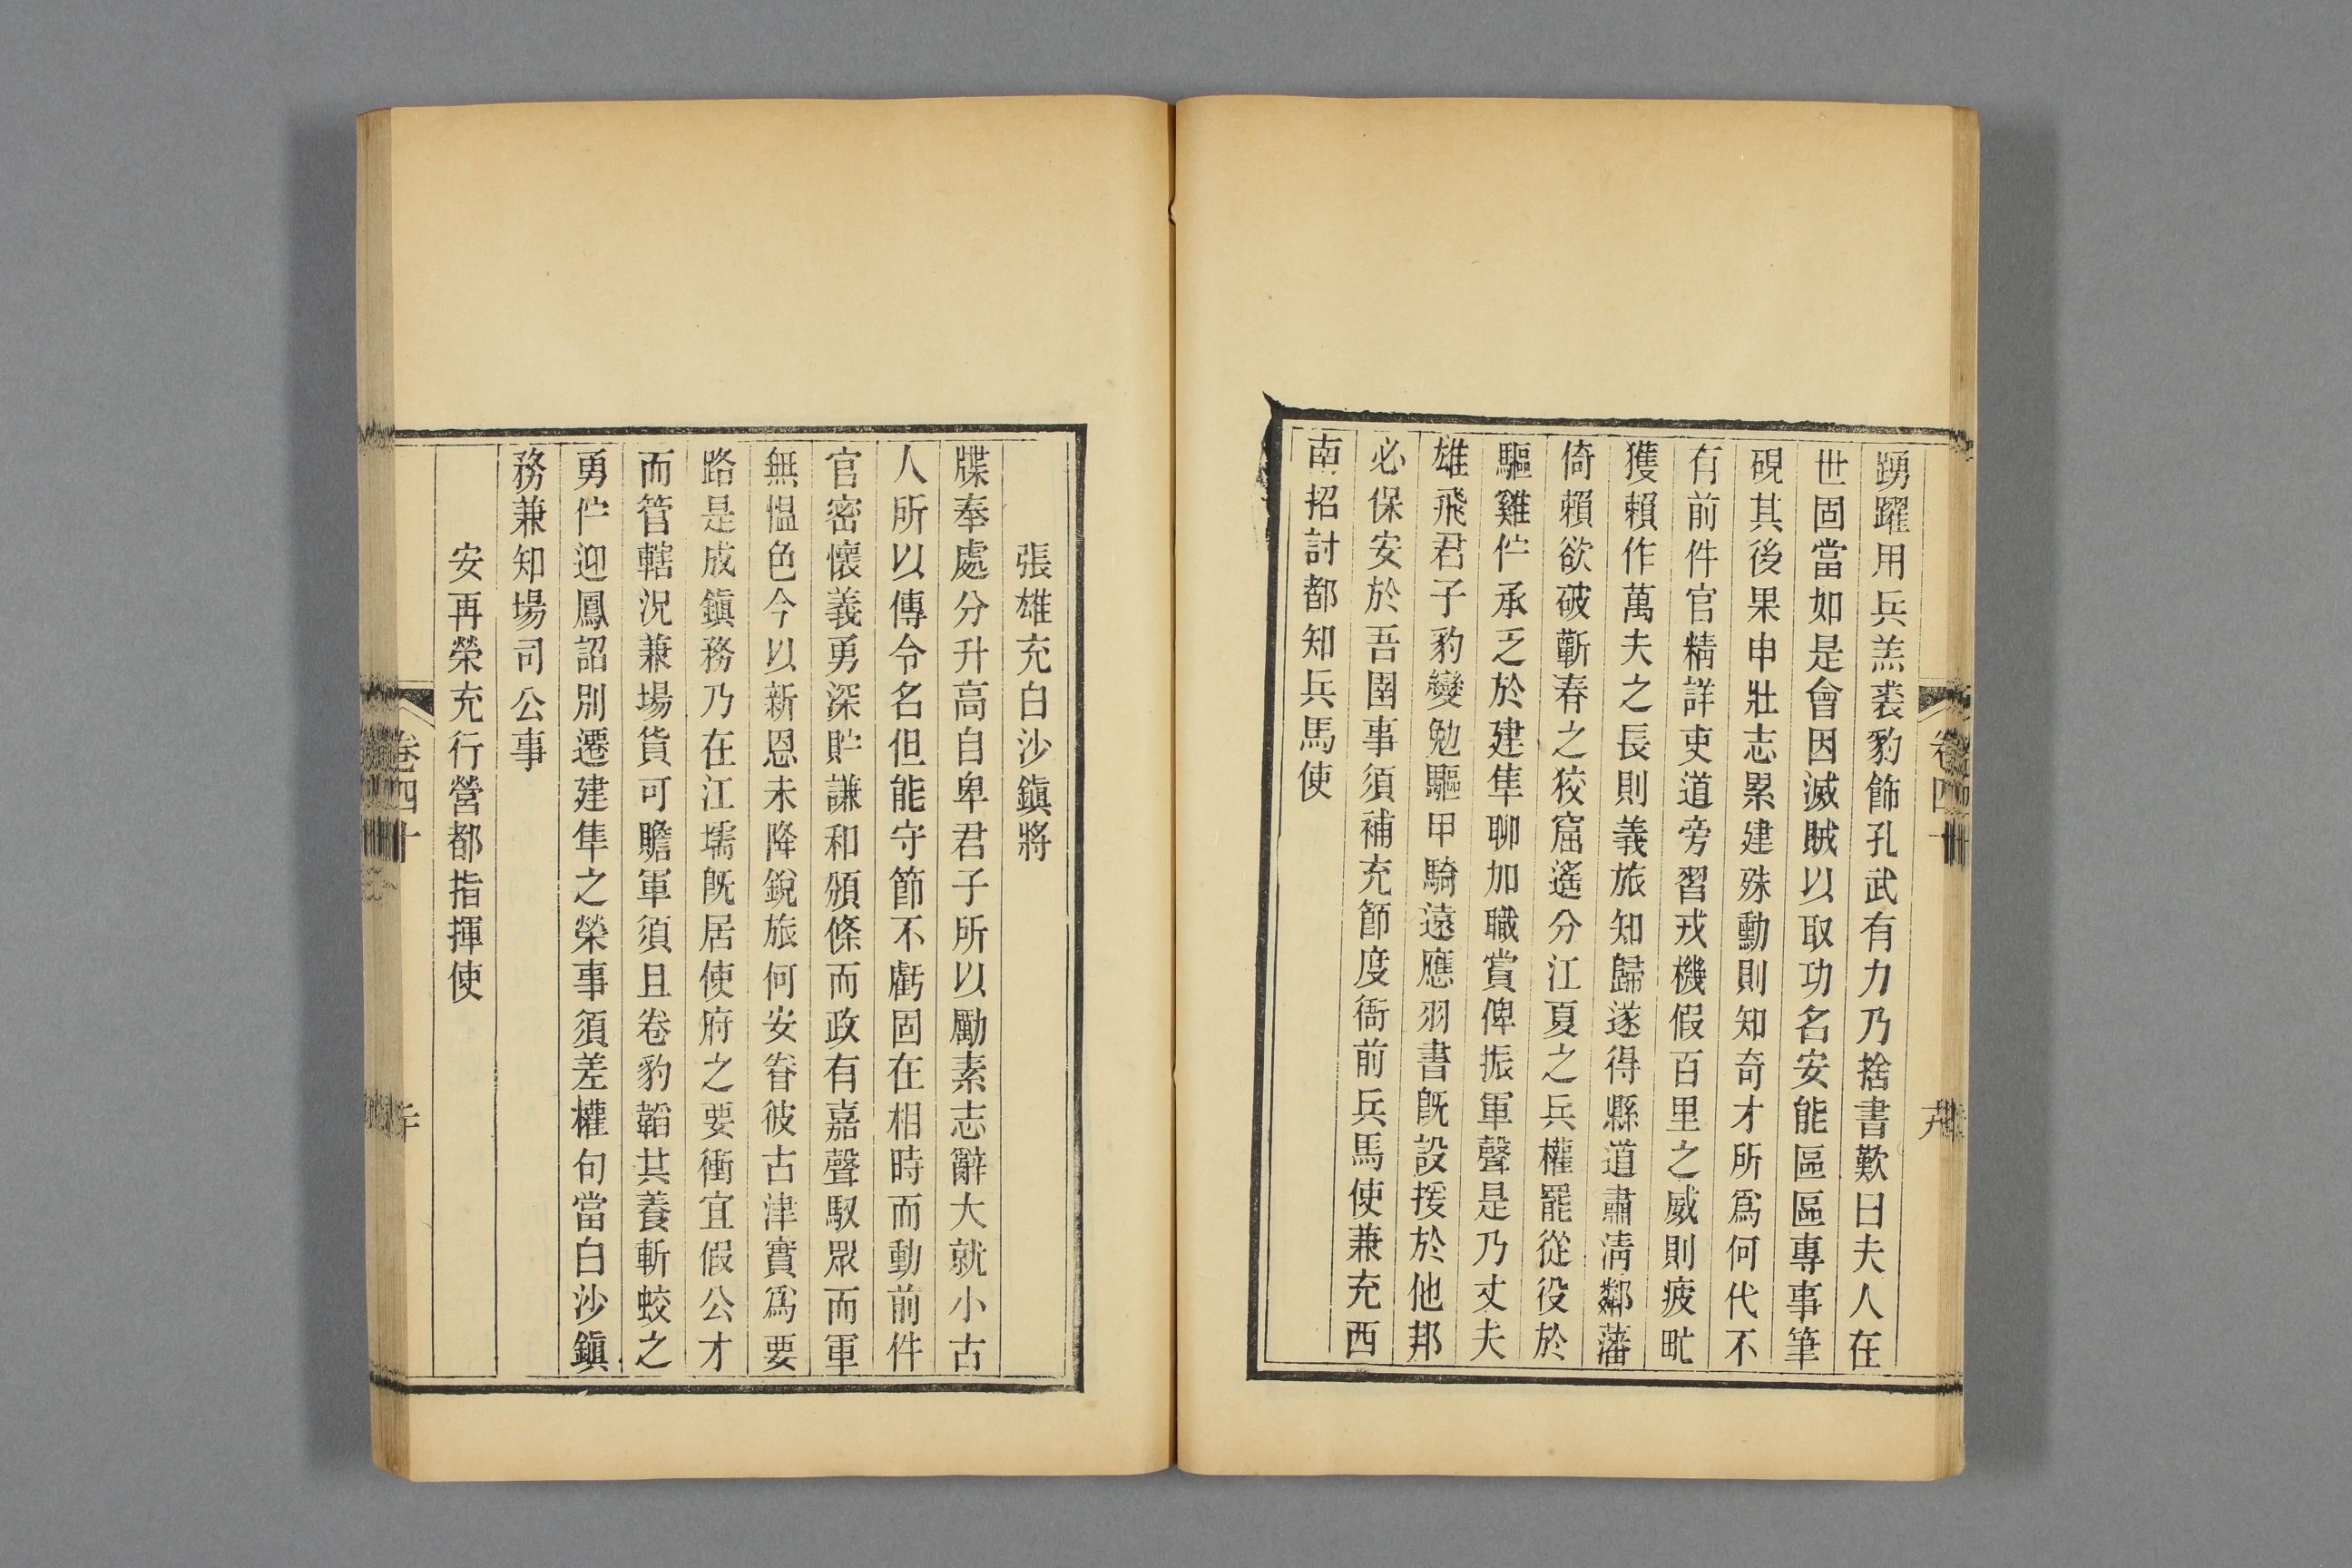 踴躍用兵羔裘豹飾孔武有力乃捨書歎曰夫人在
世固當如是會因滅賊以取功名安能區區專事筆
硯其後果申壯志累建殊勳則知奇才所爲何代不
有前件官精詳吏道旁習戎機假百里之威則疲甿
獲賴作萬夫之長則義旅知歸遂得縣道肅淸鄰藩
倚賴欲破蘄春之狡窟遙分江夏之兵權罷從役於
驅雞伫承乏於建隼聊加職賞俾振軍聲是乃丈夫
雄飛君子豹變勉驅甲騎遠應羽書旣設援於他邦
必保安於吾圉事須補充節度衙前兵馬使兼充西
南招討都知兵馬使
張雄充白沙鎭將
牒奉處分升高自卑君子所以勵素志辭大就小古
人所以傳令名但能守節不虧固在相時而動前件
官密懷義勇深貯謙和頒條而政有嘉聲馭眾而軍
無慍色今以新恩未降銳旅何安眷彼古津實爲要
路是成鎭務乃在江壖旣居使府之要衝宜假公才
而管轄況兼場貨可贍軍須且卷豹韜其養斬蛟之
勇伫迎鳳詔別遷建隼之榮事須差權句當白沙鎭
務兼知場司公事
安再榮充行營都指揮使
卷四十